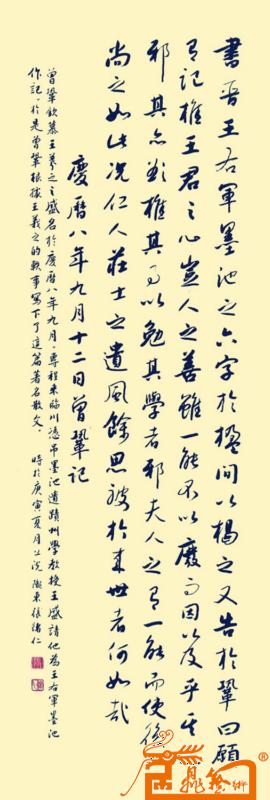 書晉王右軍墨池之六字於楹間以揭之又告於鞏曰願
有記推王君之心豈人之善雖一能不以廢而因以及乎其
邪其亦欲推其事以勉其學者邪夫人之有一能而使後
尚之如此況仁人莊士之遺風餘思被於來世者何如哉
慶曆八年九月十二日曾鞏記
曾鞏欽慕王羲之之盛名於慶曆八年九月專程來臨川憑吊墨池遺蹟州學教授王盛請他為王右軍墨池
作記於是曾鞏根據王羲之的軼事寫下了這篇著名散文 時於庚寅夏月